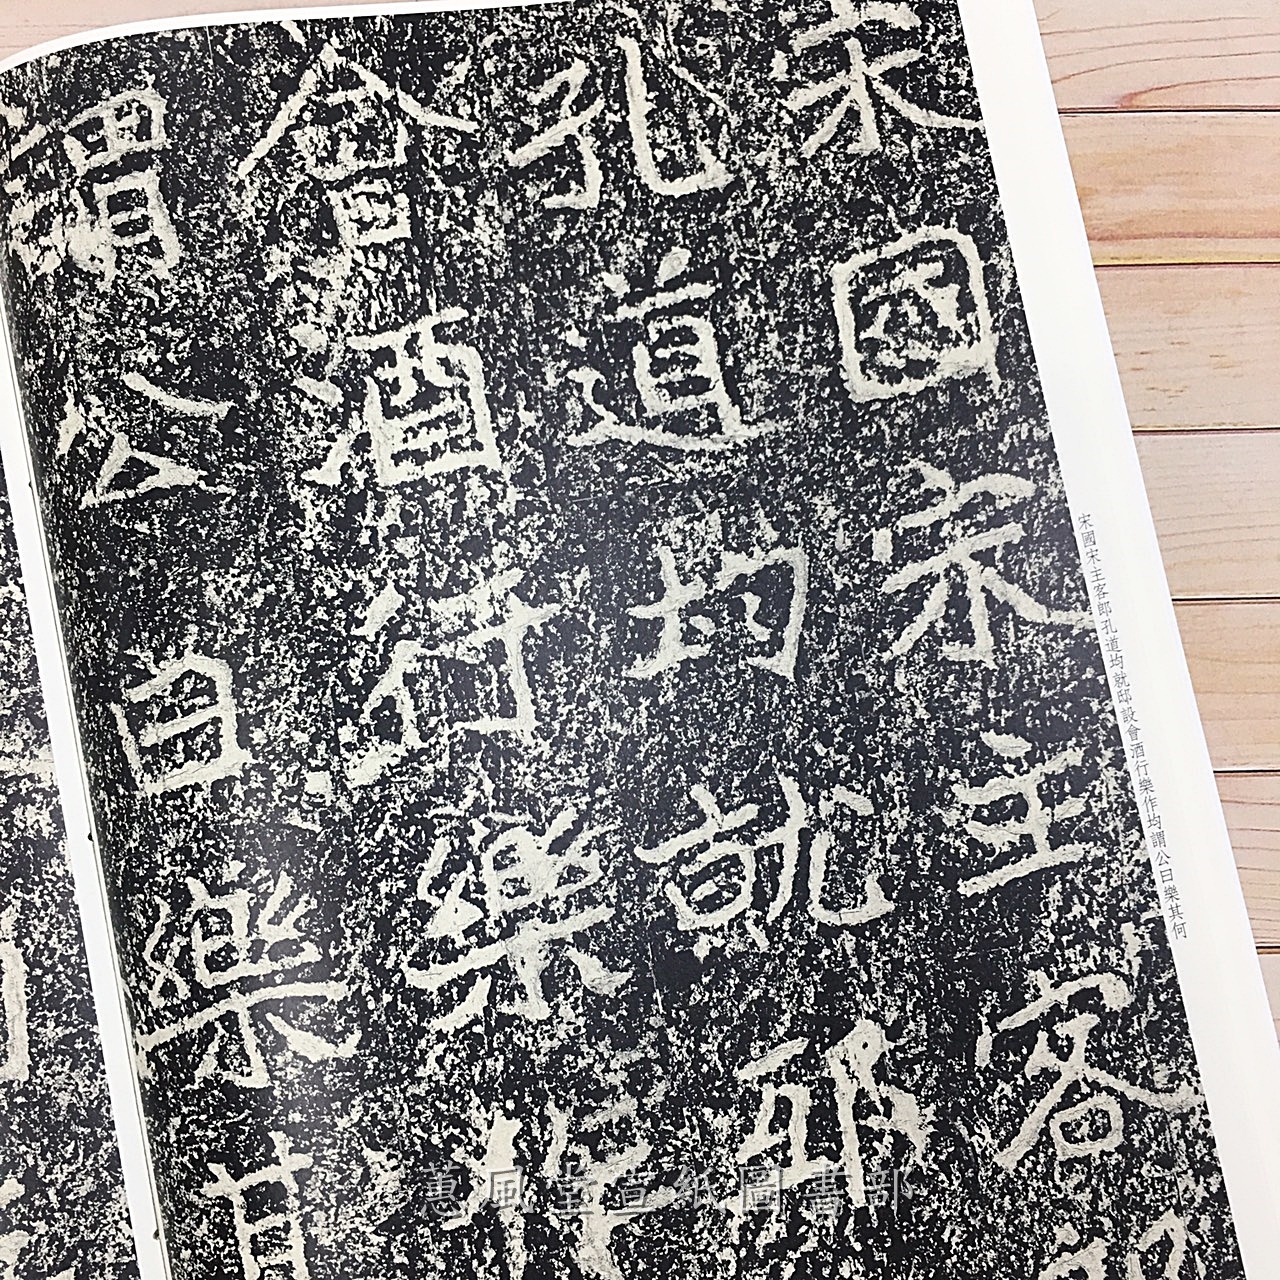 宋國宋主客郎
孔道均就邸
會酒行樂作
謂公曰樂其
宋國宋主客郎孔道均就邸設會酒行樂作均謂公曰樂其何
蕙風堂宣紙圖書部